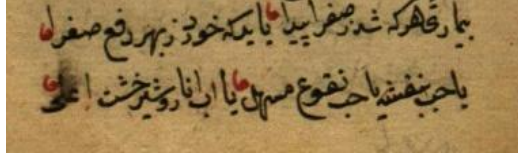 بیماریٔ هر که شد ز صفرا پیدا باید که خورد ز بهر دفع صفرا
یا حب بنفشه یا حب نقوع مسهل یا آب انار و شیرخشت اعلی